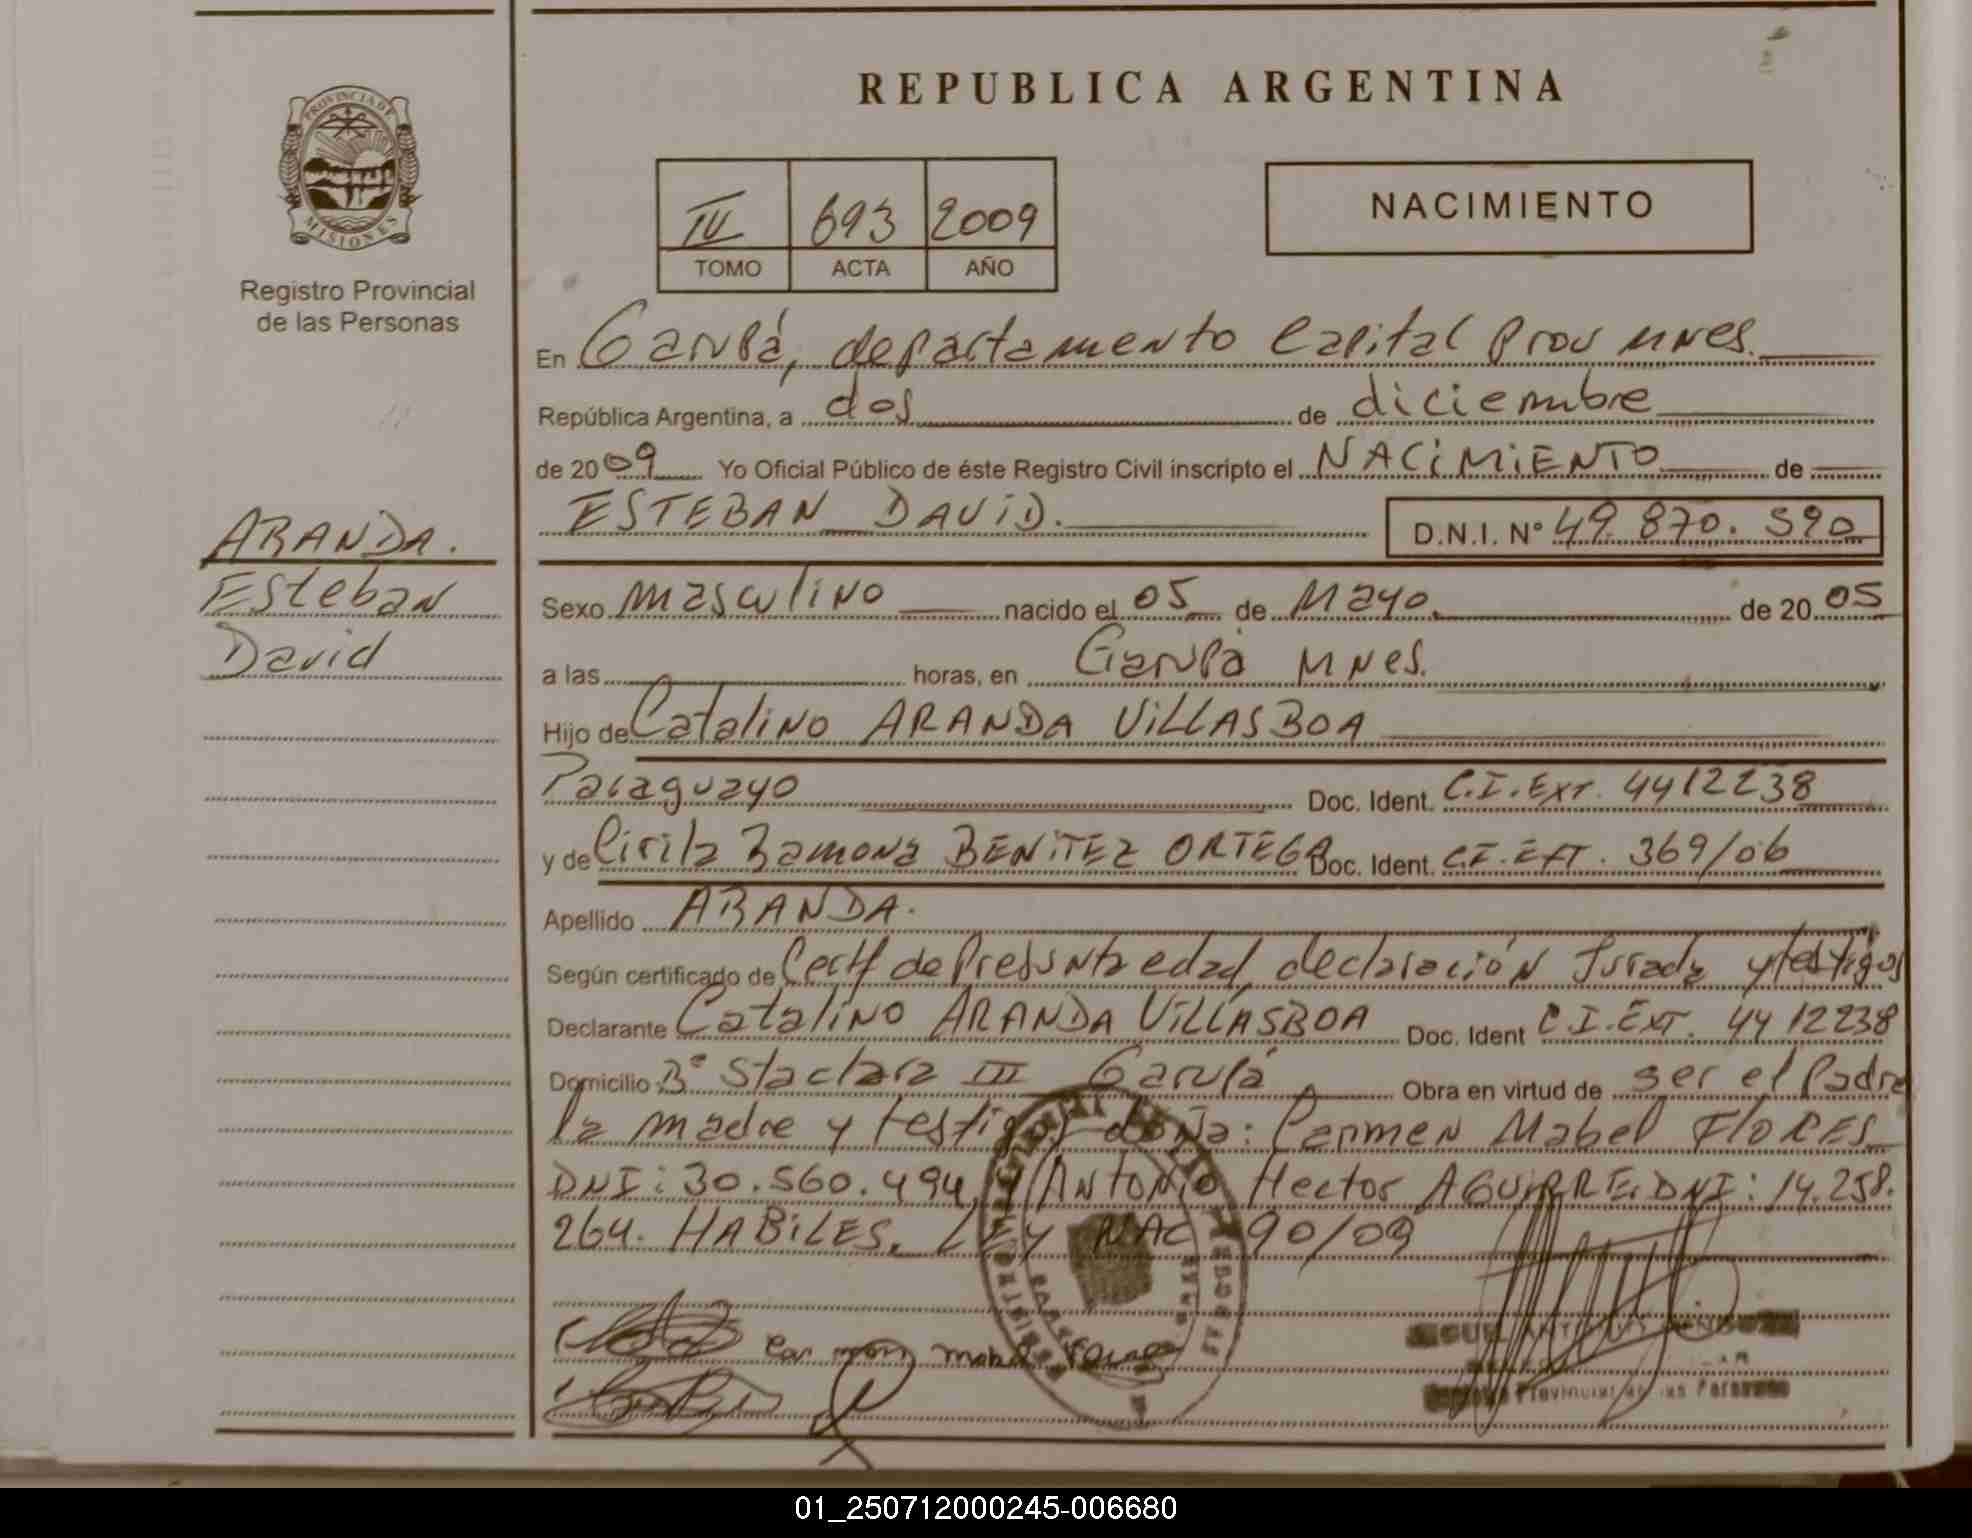 REPUBLICA ARGENTINA
PROVINCIA DE
MISIONES
Registro Provincial
de las Personas
IV 693 2009
TOMO ACTA AÑO
NACIMIENTO
En Garupá, departamento Capital Prov MNes.
República Argentina, a dos de diciembre
de 2009 Yo Oficial Público de éste Registro Civil inscripto el NACIMIENTO de
ESTEBAN DAVID. D.N.I. Nº 49.870.590
ARANDA.
Esteban
David
Sexo masculino nacido el 05 de Mayo. de 2005
a las horas, en Garupá MNes.
Hijo de Catalino ARANDA VILLASBOA
Paraguayo Doc. Ident. C.I.Ext. 4412238
y de Cirila Ramona BENITEZ ORTEGA Doc. Ident. C.I.EXT. 369/06
Apellido ARANDA.
Según certificado de Certf de Presunta edad, declaración Jurada y testigos
Declarante Catalino ARANDA VILLASBOA Doc. Ident C.I.Ext. 4412238
Domicilio Bº Sta clara III Garupá Obra en virtud de ser el Padre
la madre y testigos doña: Carmen Mabel FLORES
DNI: 30.560.494 y Antonio Hector AGUIRRE. DNI: 14.258.
264. HABILES. LEY NAC 90/09
Provincial de las Personas
01_250712000245-006680